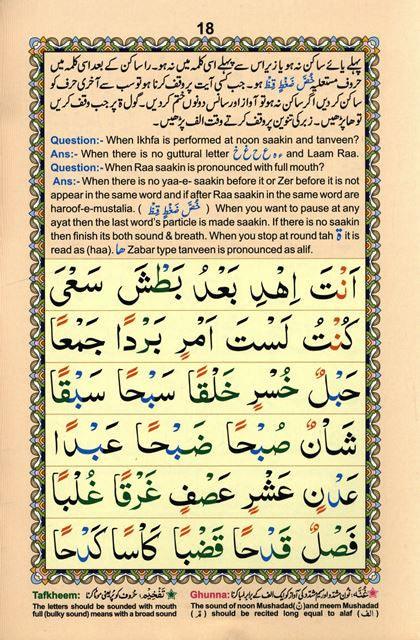 18
پہلے یائے ساکن نہ ہو یا زیر اس سے پہلے اسی کلمہ میں نہ ہو۔ را ساکن کے بعد اسی کلمہ میں
حروف مستعلیہ خُصَّ ضَغْطٍ قِظْ نہ ہو۔ جب کسی آیت پر وقف کرنا ہو تو سب سے آخری حرف کو
ساکن کر دیں اگر ساکن نہ ہو تو آواز اور سانس دونوں ختم کر دیں۔ گول ۃ پر جب وقف کریں
تو ھا پڑھیں۔ زبر کی تنوین پر وقف کرتے وقت الف پڑھیں۔
Question:- When Ikhfa is performed at noon saakin and tanveen?
Ans:- When there is no guttural letter ء ہ ع ح غ خ and Laam Raa.
Question:- When Raa saakin is pronounced with full mouth?
Ans:- When there is no yaa-e- saakin before it or Zer before it is not
appear in the same word and if after Raa saakin in the same word are
haroof-e-mustalia. ( خُصَّ ضَغْطٍ قِظْ ) When you want to pause at any
ayat then the last word's particle is made saakin. If there is no saakin
then finish its both sound & breath. When you stop at round tah ۃ it is
read as (haa). ھا Zabar type tanveen is pronounced as alif.
اَنْتَ اِهْدِ بَعْدُ بَطْشَ سَعْیَ
كُنْتُ لَسْتَ اَمْرٍ بَرْدًا جَمْعًا
حَبْلٌ خُسْرٍ خَلْقًا سَبْحًا سَبْقًا
شَاْنٌ صُبْحًا ضَبْحًا عَبْدًا
عَدْنٍ عَشْرٍ عَصْفٍ غَرْقًا غُلْبًا
فَصْلٌ قَدْحًا قَضْبًا كَاْسًا كَدْحًا
Tafkheem: تَفْخِیْم: حروف کو پُر یعنی موٹا کرنا
The letters should be sounded with mouth
full (bulky sound) means with a broad sound
Ghunna: غُنَّہ: نون مشدد اور میم مشدد کی آواز کو ایک الف کے برابر لمبا کرنا
The sound of noon Mushadad(نّ)and meem Mushadad
( مّ ) should be recited long equal to alaf (الف)